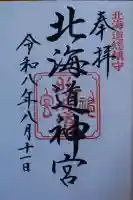 北海道総鎮守
奉拝
北海道神宮
令和八年八月十一日